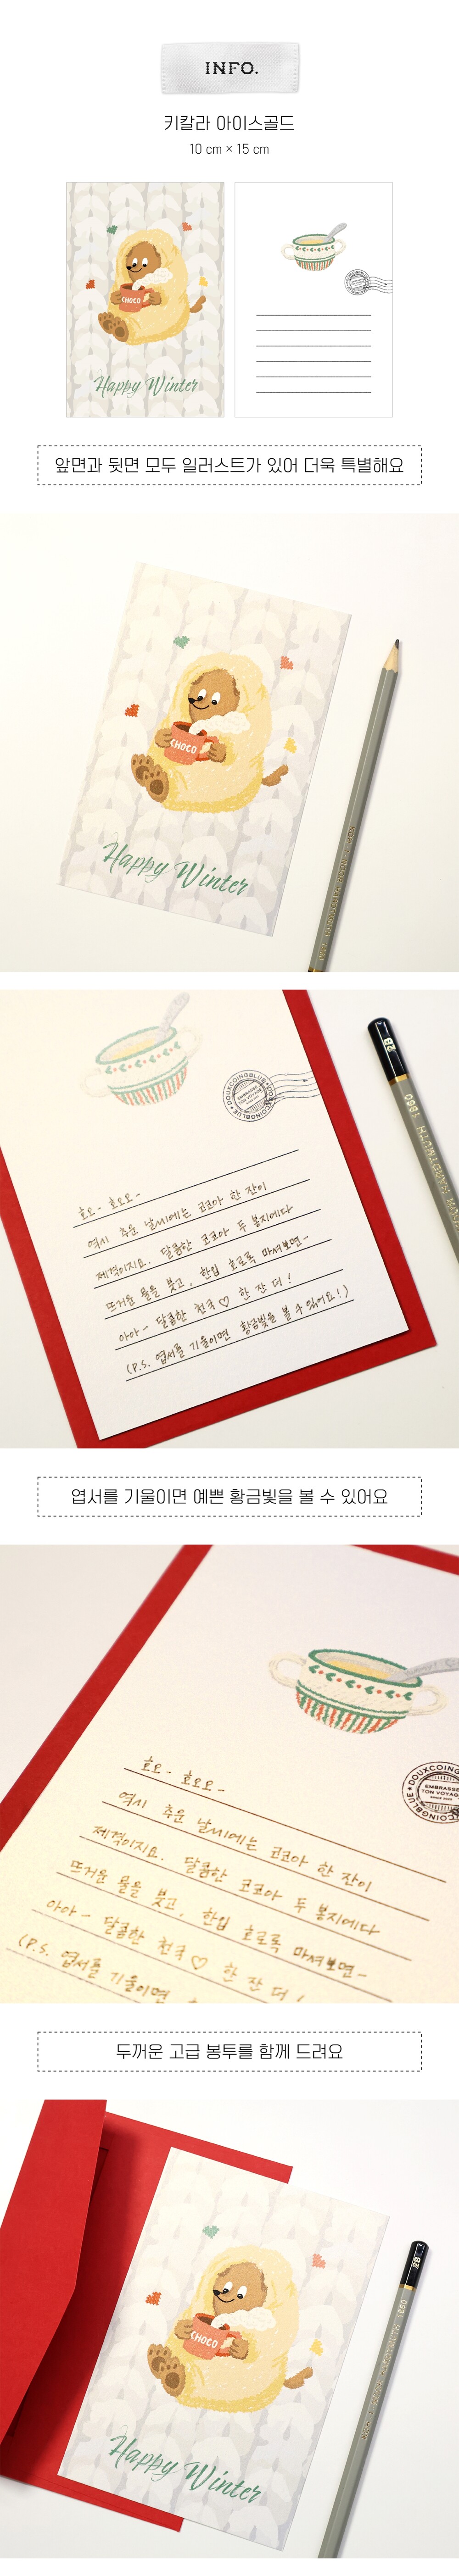 INFO.
키칼라 아이스골드
10 cm × 15 cm
CHOCO
Happy Winter
앞면과 뒷면 모두 일러스트가 있어 더욱 특별해요
CHOCO
Happy Winter
2B
1860
DOUXCOINGBLUE
호오- 호오오-
역시 추운 날씨에는 코코아 한 잔이
제격이지요. 달콤한 코코아 두 봉지에다
뜨거운 물을 붓고, 한입 호로록 마셔보면-
아아- 달콤한 천국♡ 한 잔 더!
(P.S. 엽서를 기울이면 황금빛을 볼 수 있어요!)
엽서를 기울이면 예쁜 황금빛을 볼 수 있어요
DOUXCOING
COINGBLUE
EMBRASSE
TON VOYAG
호오- 호오오-
역시 추운 날씨에는 코코아 한 잔이
제격이지요. 달콤한 코코아 두 봉지에다
뜨거운 물을 붓고, 한입 호로록 마셔보면-
아아- 달콤한 천국♡ 한 잔 더!
(P.S. 엽서를 기울이면
두꺼운 고급 봉투를 함께 드려요
2B
1860
CHOCO
Happy Winter